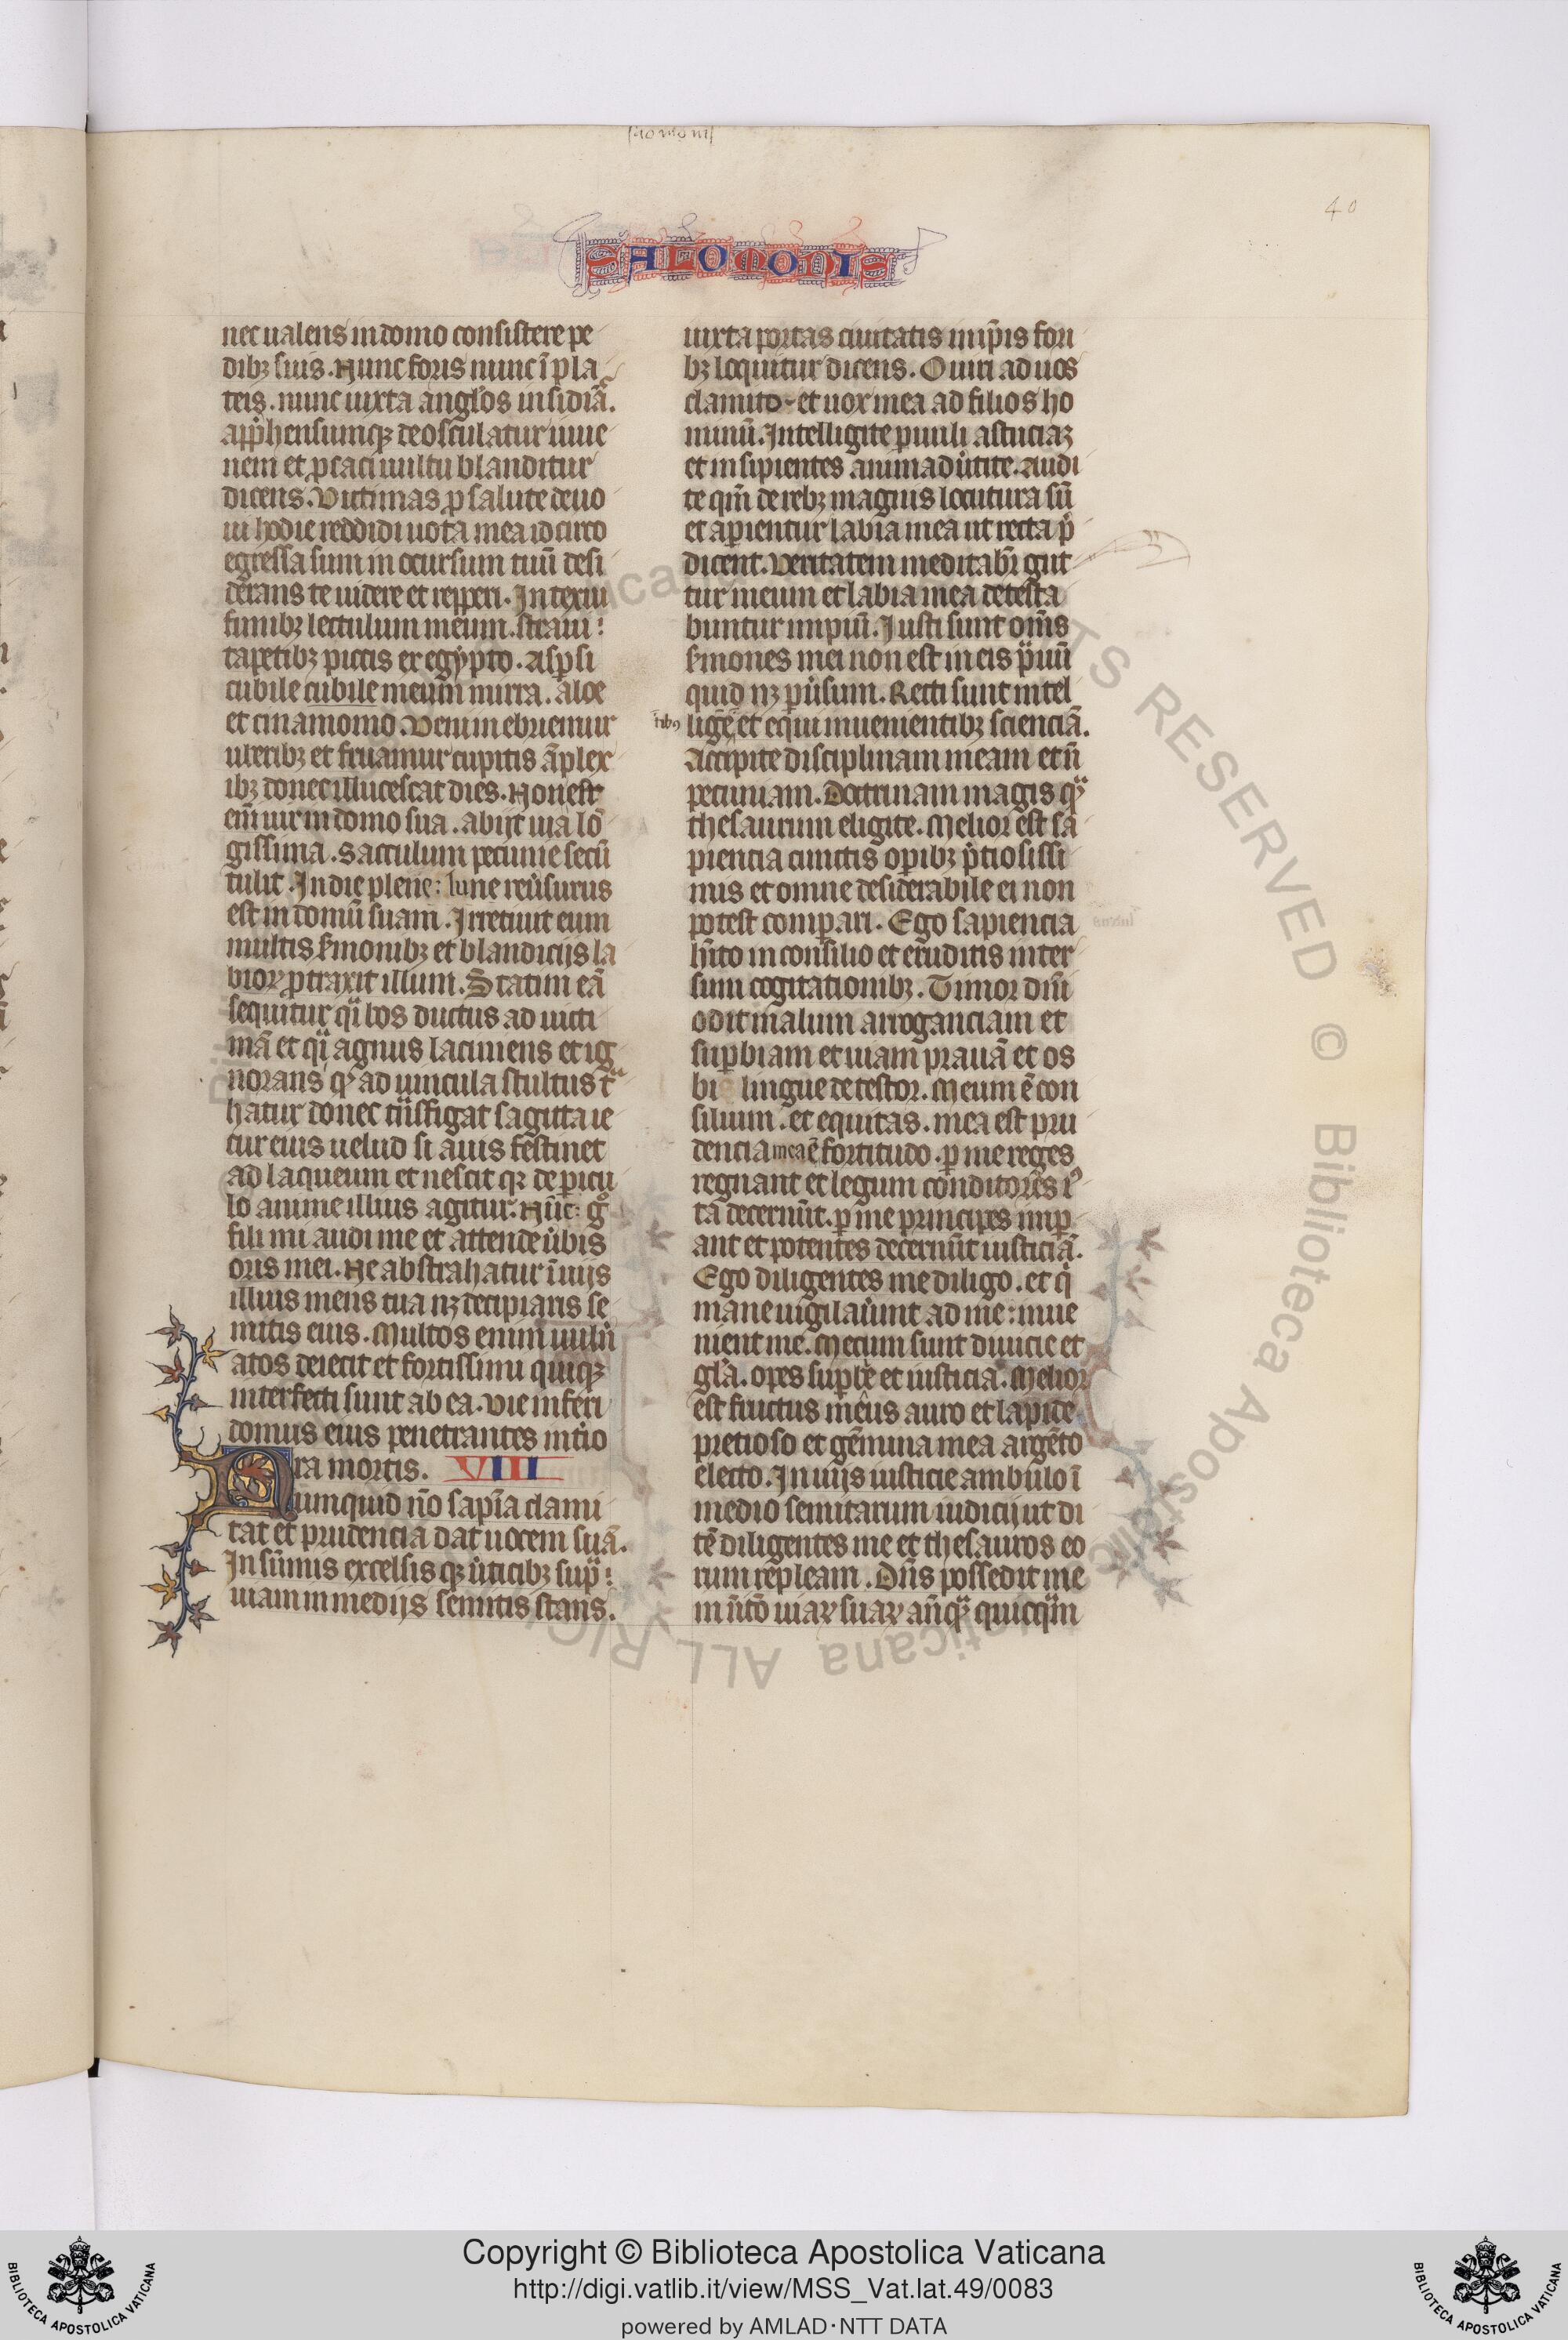 salomonis
40
SALOMONIS
nec ualens in domo consistere pe
dibꝫ suis. Nunc foris nunc ī pla
teis. nunc iuxta anglos insidiãᷓ.
app̄hensumqꝫ deosculatur iuue
nem et ꝓcaci uultu blanditur
dicens. Victimas ꝓ salute deuo
ui hodie reddidi uota mea idcirco
egressa sum in occursum tuū desi
derans te uidere et repperi. Intexui
funibꝫ lectulum meum. straui
tapetibꝫ pictis ex egypto. Aspsi
cubile cubile meum mirra. aloe
et cinamomo. Veni inebriemur
uberibꝫ et fruamur cupitis āplex
ibꝫ donec illucescat dies. Non est
eīm uir in domo sua. abijt uia lō
gissima. Sacculum pecunie secū
tulit. In die plene: lune reu̾surus
est in domū suam. Irretiuit eum
multis s̾monibꝫ et blandicijs la
bioꝝ ꝓtraxit illum. Statim eā
sequitur qͣi bos ductus ad uicti
mā et qͣi agnus lasciuiens et ig
norans qꝫ ad uincula stultus tᷓ
hatur donec tͣnsfigat sagitta ie
cur eius uelud si auis festinet
ad laqueum et nescit qꝫ de picu
lo anime illius agitur. Nūc: gͦ
fili mi audi me et attende u̾bis
oris mei. Ne abstrahatur ī uijs
illius mens tua nꝫ decipiaris se
mitis eius. Multos enim uuln̄
atos deiecit et fortissimi quiqꝫ
interfecti sunt ab ea. Vie inferi
domus eius penetrantes int̾io
ra mortis. VIII
Numquid nō sapīa clami
tat et prudencia dat uocem suā.
In sūmis excelsis qꝫ u̾ticibꝫ supͣ
uiam in medijs semitis stans.
iuxta portas ciuitatis in ip̄is fori
bꝫ loquitur dicens. O uiri ad uos
clamito et uox mea ad filios ho
minū. Intelligite puuli astuciaꝫ
et insipientes animaduu̾tite. Audi
te qm̄ de rebꝫ magnis locutura sū
et apientur labia mea ut recta p̄
dicent. Veritatem meditabr̄ gut
tur meum et labia mea detesta
buntur impiū. Iusti sunt om̄s
s̾mones mei non est in eis pͣuū
quid nꝫ pu̾sum. Recti sunt intel
tibꝫ
ligē et equi inuenientibꝫ scienciā.
Accipite disciplinam meam et n̄
pecuniam. Doctrinam magis qͣꝫ
thesaurum eligite. Melior est sa
piencia cunctis opibꝫ p̄ciosissi
mis et omne desiderabile ei non
potest compari. Ego sapiencia
hīto in consilio et eruditis inter
sum cogitationibꝫ. Timor dnī
odit malum arroganciam et
supbiam et uiam prauā et os
bi lingue detestor. Meum ē con
silium. et equitas. mea est pru
dencia mea ē fortitudo. p me reges
regnant et legum conditores iꝰ
ta decernūt. p me principes imp
ant et potentes decernūt iusticiā.
Ego diligentes me diligo. et qͥ
mane uigilau̾unt ad me: inue
nient me. Mecum sunt diuicie et
glā. opes supbe et iusticia. Melior
est fructus meus auro et lapide
pretioso et gēmina mea argēto
electo. In uijs iusticie ambulo ī
medio semitarum iudicij ut di
tē diligentes me et thesauros eo
rum repleam. Dn̄s possedit me
in īntō uiaꝝ suaꝝ an̄qͣꝫ quicqͣm
Copyright © Biblioteca Apostolica Vaticana
http://digi.vatlib.it/view/MSS_Vat.lat.49/0083
powered by AMLAD·NTT DATA
BIBLIOTECA APOSTOLICA VATICANA
BIBLIOTECA APOSTOLICA VATICANA
© Biblioteca Apostolica Vaticana ALL RIGHTS RESERVED